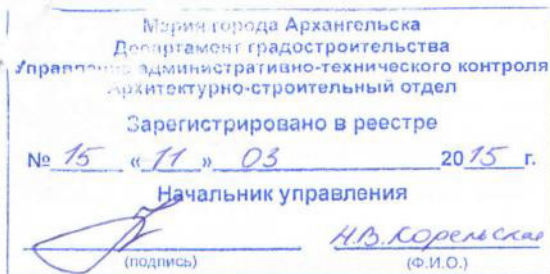 Мэрия города Архангельска
Департамент градостроительства
Управление административно-технического контроля
Архитектурно-строительный отдел
Зарегистрировано в реестре
№ 15 « 11 » 03 2015 г.
Начальник управления
Н.В. Корельская
(подпись) (Ф.И.О.)